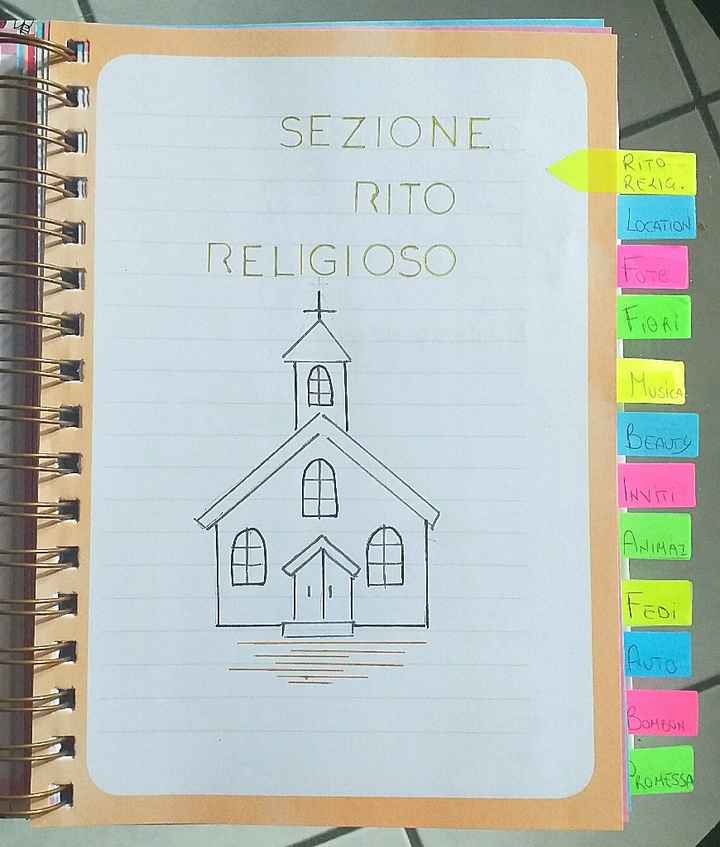 SEZIONE
RITO
RELIGIOSO
RITO
RELIG.
LOCATION
FOTO
FIORI
MUSICA
BEAUTY
INVITI
FEDI
AUTO
PROMESSA